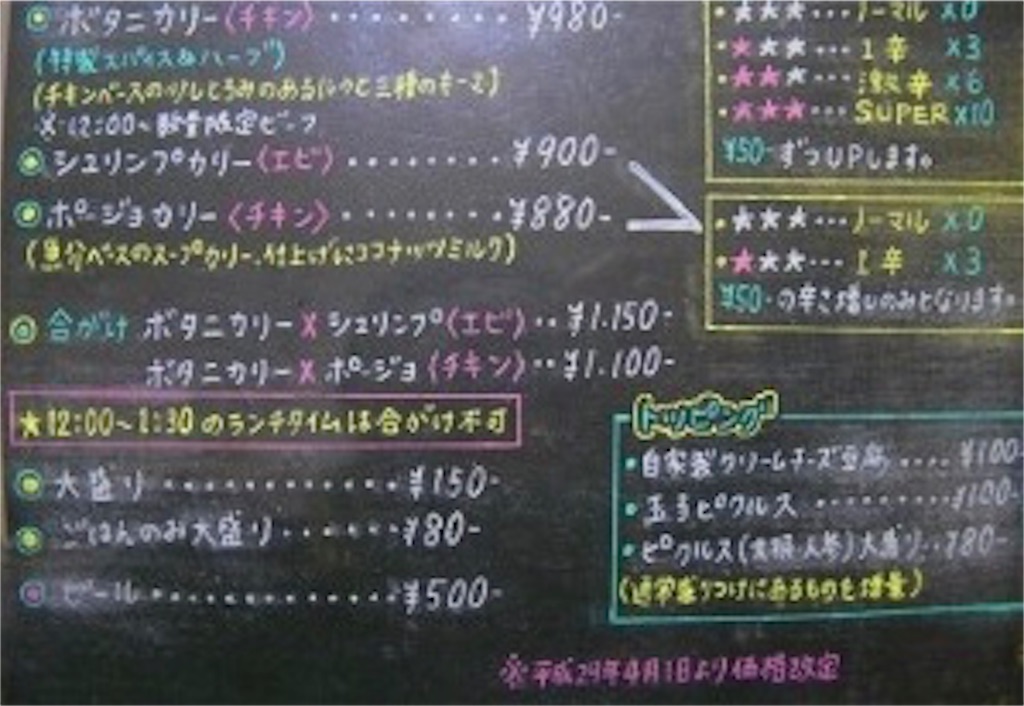 ボタニカリー〈チキン〉········¥980-
(特製スパイス&ハーブ)
(チキンベースの
※12:00〜数量限定
シュリンプカリー〈エビ〉········¥900-
ポージョカリー〈チキン〉········¥880-
(魚介ベースのスープカリー、仕上げにココナッツミルク)
合がけ ボタニカリー×シュリンプ〈エビ〉··¥1.150-
ボタニカリー×ポージョ〈チキン〉··¥1.100-
★12:00〜1:30のランチタイムは合がけ不可
大盛り·············¥150-
ごはんのみ大盛り······¥80-
ビール·············¥500-
★★★···ノーマル ×0
★★★···1辛 ×3
★★★···激辛 ×6
★★★···SUPER ×10
¥50-ずつUPします。
★★★···ノーマル ×0
★★★···1辛 ×3
¥50-の辛さ増しのみとなります。
トッピング
・自家製クリームチーズ豆腐····¥100-
・玉子ピクルス·········¥100-
・ピクルス(大根・人参)大盛り··¥80-
(通常盛りつけにあるものを増量)
※平成29年4月1日より価格改定